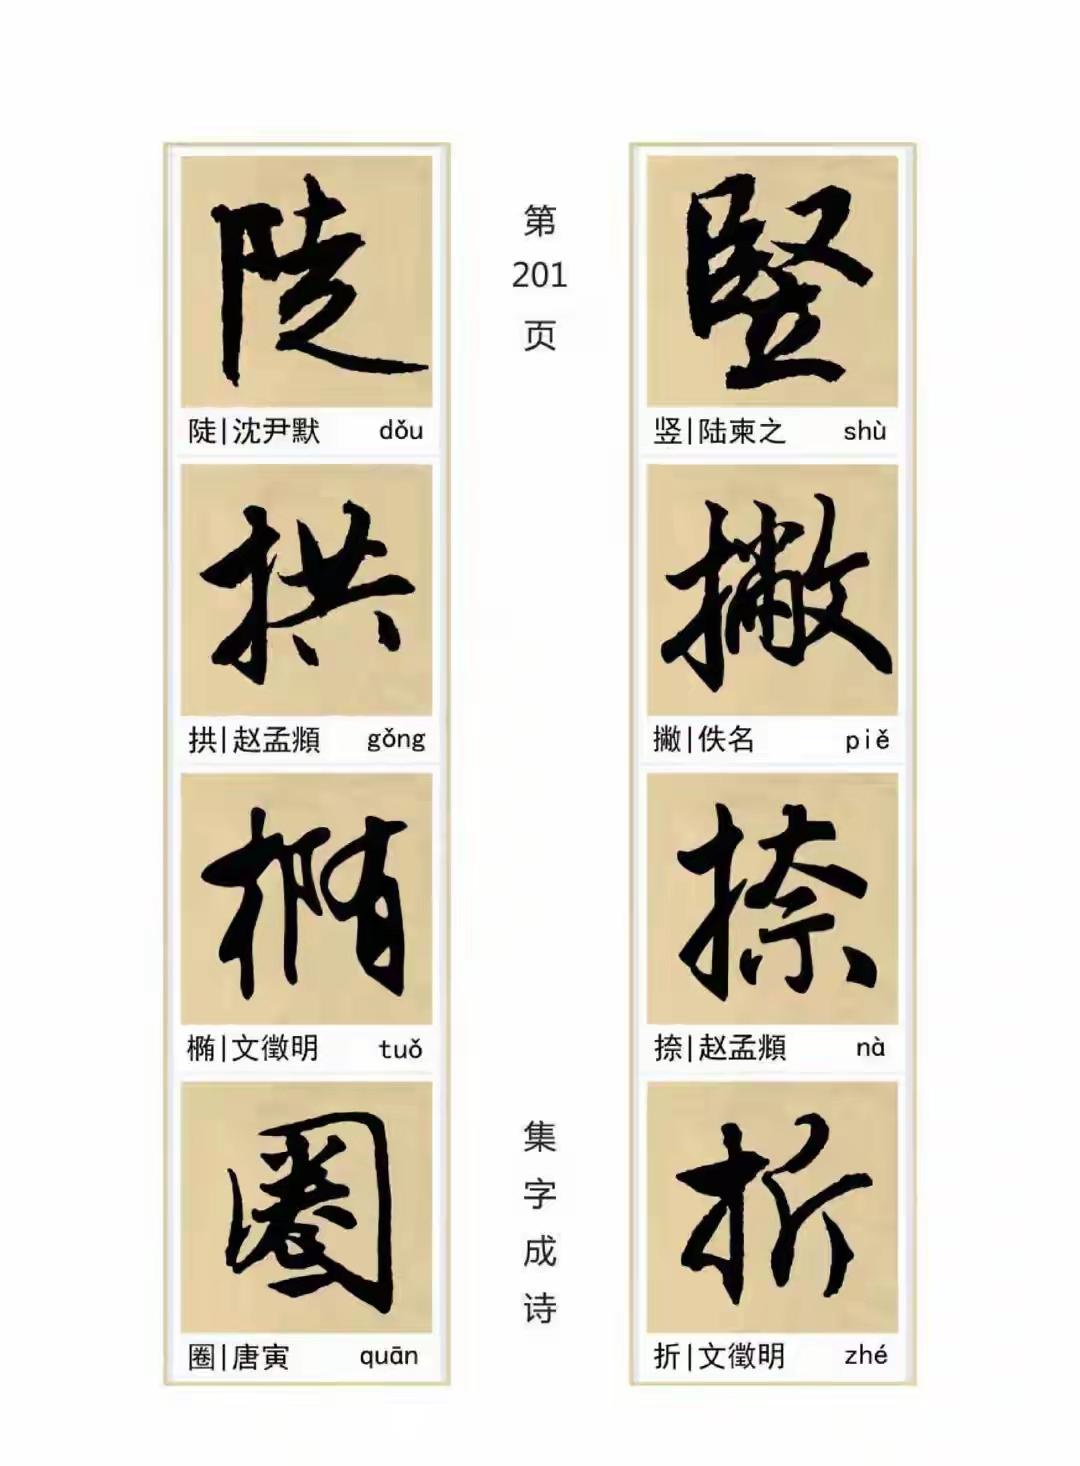 竖
竖|陆柬之 shù
撇
撇|佚名 piě
捺
捺|赵孟頫 nà
折
折|文徵明 zhé
第
201
页
集
字
成
诗
陡
陡|沈尹默 dǒu
拱
拱|赵孟頫 gǒng
椭
椭|文徵明 tuǒ
圈
圈|唐寅 quān